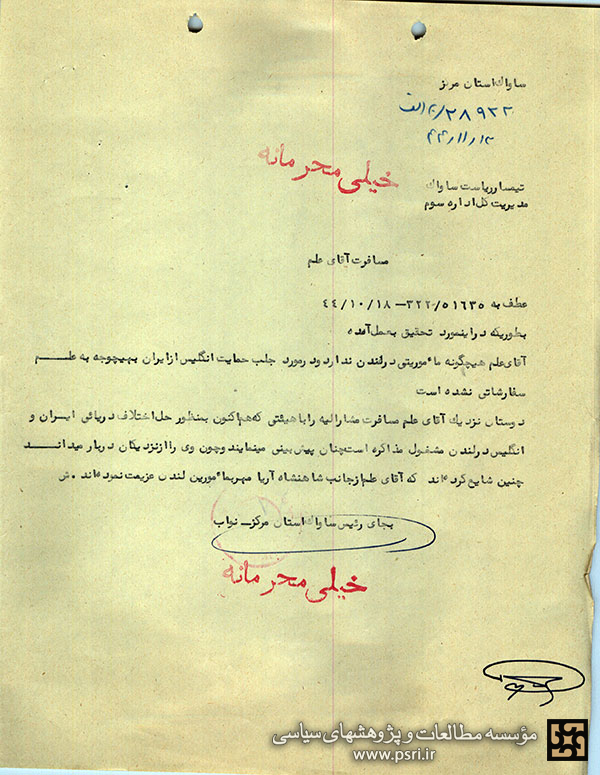 ساواك استان مرکز
۲۸۹۲۲/۲۰الف
۴۴/۱۱/۱۲
خیلی محرمانه
تیمسار ریاست ساواك
مدیریت کل اداره سوم
مسافرت آقای علم
عطف به ۳۲۲/۵۱۶۳۵ – ۴۴/۱۰/۱۸
بطوریکه در اینمورد تحقیق بعمل آمده
آقای علم هیچگونه مأموریتی در لندن ندارد و در مورد جلب حمایت انگلیس از ایران بهیچوجه به علم
سفارشاتی نشده است
دوستان نزدیك آقای علم مسافرت مشارالیه را با هیئتی که هم اکنون بمنظور حل اختلاف دریائی ایران و
انگلیس در لندن مشغول مذاکره است چنان پیش بینی مینمایند و چون وی را از نزدیکان دربار میدانند
چنین شایع کرده اند که آقای علم از جانب شاهنشاه آریا مهر بمأمورین لندن عزیمت نموده اند . ش
بجای رئیس ساواك استان مرکز – نواب
خیلی محرمانه
مؤسسه مطالعات و پژوهشهای سیاسی
www.psri.ir